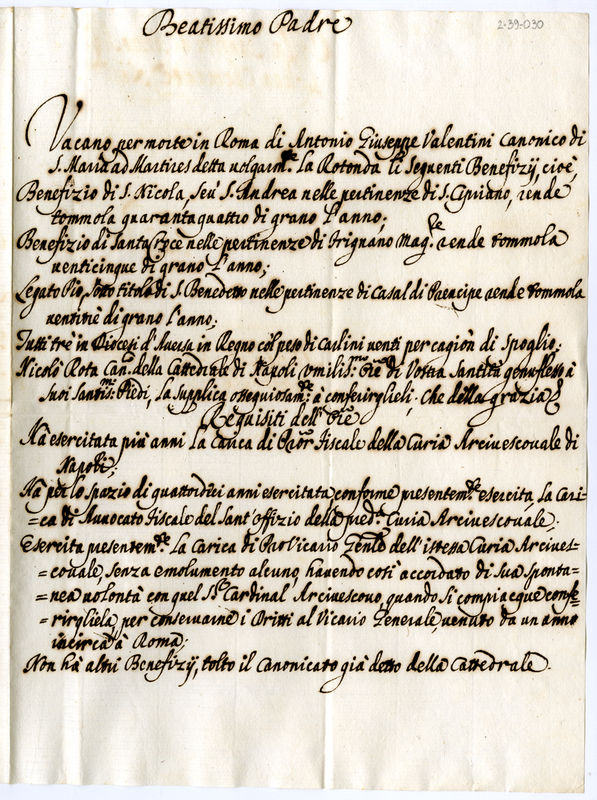 2-39-030
Beatissimo Padre
Vacano per morte in Roma di Antonio Giuseppe Valentini Canonico di
S. Maria ad Martires detta volgarm.te La Rotonda li seguenti Benefizÿ, cioè,
Benefizio di S. Nicola, seu S. Andrea nelle pertinenze di S. Cipriano, rende
tommola quarantaquattro di grano l'anno;
Benefizio di Santa Croce nelle pertinenze di Trignano Mag.re rende tommola
venticinque di grano l'anno;
Legato Pio, sotto titolo di S. Benedetto nelle pertinenze di Casal di Prencipe rende tommola
ventitrè di grano l'anno;
Tutti tre in Diocesi d'Aversa in Regno col peso di Carlini venti per cagion di Spoglio;
Nicolò Rota Can.co della Cattedrale di Napoli umiliss.mo Ore di Vostra Santità genuflesso à
suoi Santis.mi Piedi, La supplica ossequiosam.te à conferirglieli; che della grazia &
Requisiti dell' Ore
Hà esercitata più anni La Carica di Pror Fiscale della Curia Arcivescovale di
Napoli;
Hà per lo spazio di quattordici anni esercitata, conforme presentem.te esercita, La Cari-
=ca di Avvocato Fiscale del Sant'Offizio della pred.ta Curia Arcivescovale.
Esercita presentem.te La Carica di ProVicario Gen̄le dell'istessa Curia Arcives-
=covale, senza emolumento alcuno, havendo così accordato di sua sponta-
=nea volontà con quel S.r Cardinal Arcivescovo, quando si compiacque confe-
=rirgliela, per conservarne i Dritti al Vicario Generale, venuto da un anno
incirca à Roma;
Non hà altri Benefizÿ, tolto il Canonicato già detto della Cattedrale.